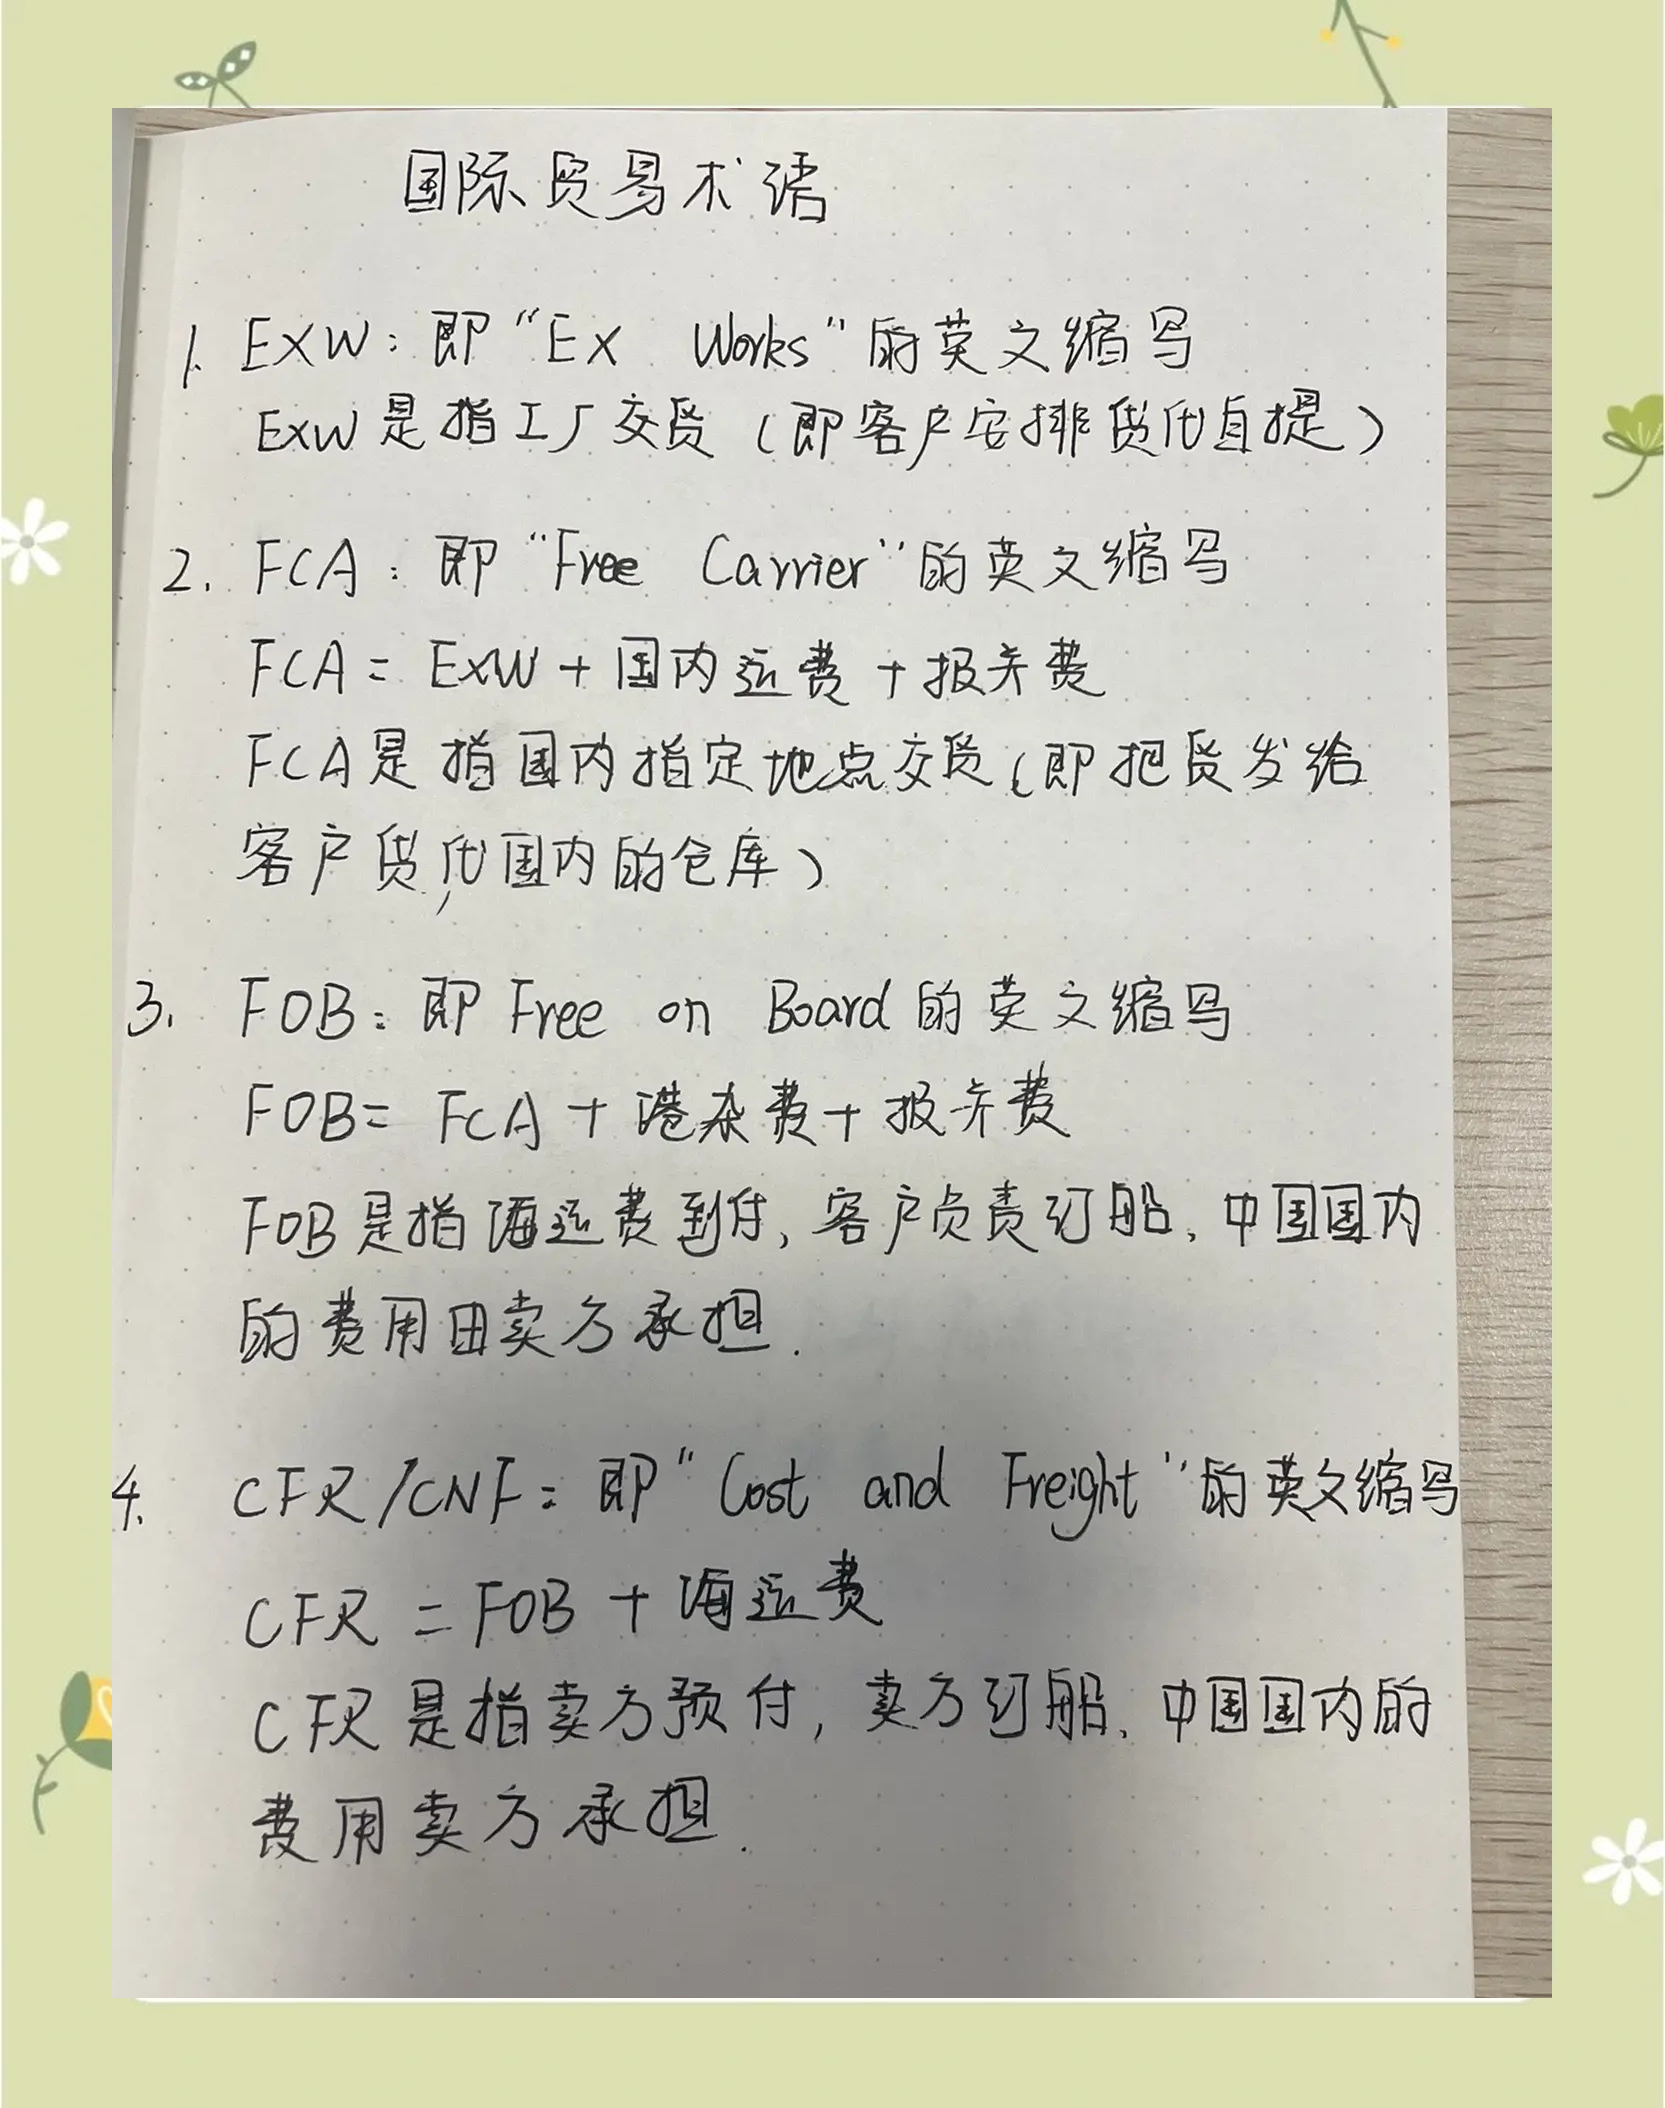 国际贸易术语
1. EXW：即“EX Works”的英文缩写
EXW是指工厂交货（即客户安排货代自提）
2. FCA：即“Free Carrier”的英文缩写
FCA = EXW + 国内运费 + 报关费
FCA是指国内指定地点交货（即把货发给
客户货代国内的仓库）
3. FOB：即 Free on Board 的英文缩写
FOB = FCA + 港杂费 + 报关费
FOB是指海运费到付，客户负责订船，中国国内
的费用由卖方承担.
4. CFR/CNF：即“Cost and Freight”的英文缩写
CFR = FOB + 海运费
CFR是指卖方预付，卖方订船，中国国内的
费用卖方承担.